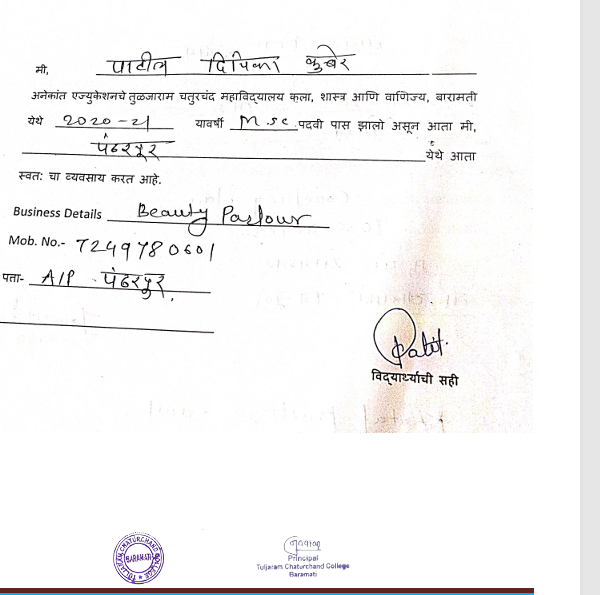 मी, पाटील दिपिका कुबेर
अनेकांत एज्युकेशनचे तुळजाराम चतुरचंद महाविद्यालय कला, शास्त्र आणि वाणिज्य, बारामती
येथे 2020-21 यावर्षी M.sc पदवी पास झालो असून आता मी,
पंढरपूर येथे आता
स्वतः चा व्यवसाय करत आहे.
Business Details Beauty Parlour
Mob. No.- 7249780601
पता- A/P पंढरपुर.
Patil.
विद्यार्थ्याची सही
TULJARAM CHATURCHAND COLLEGE
BARAMATI
Principal
Tuljaram Chaturchand College
Baramati